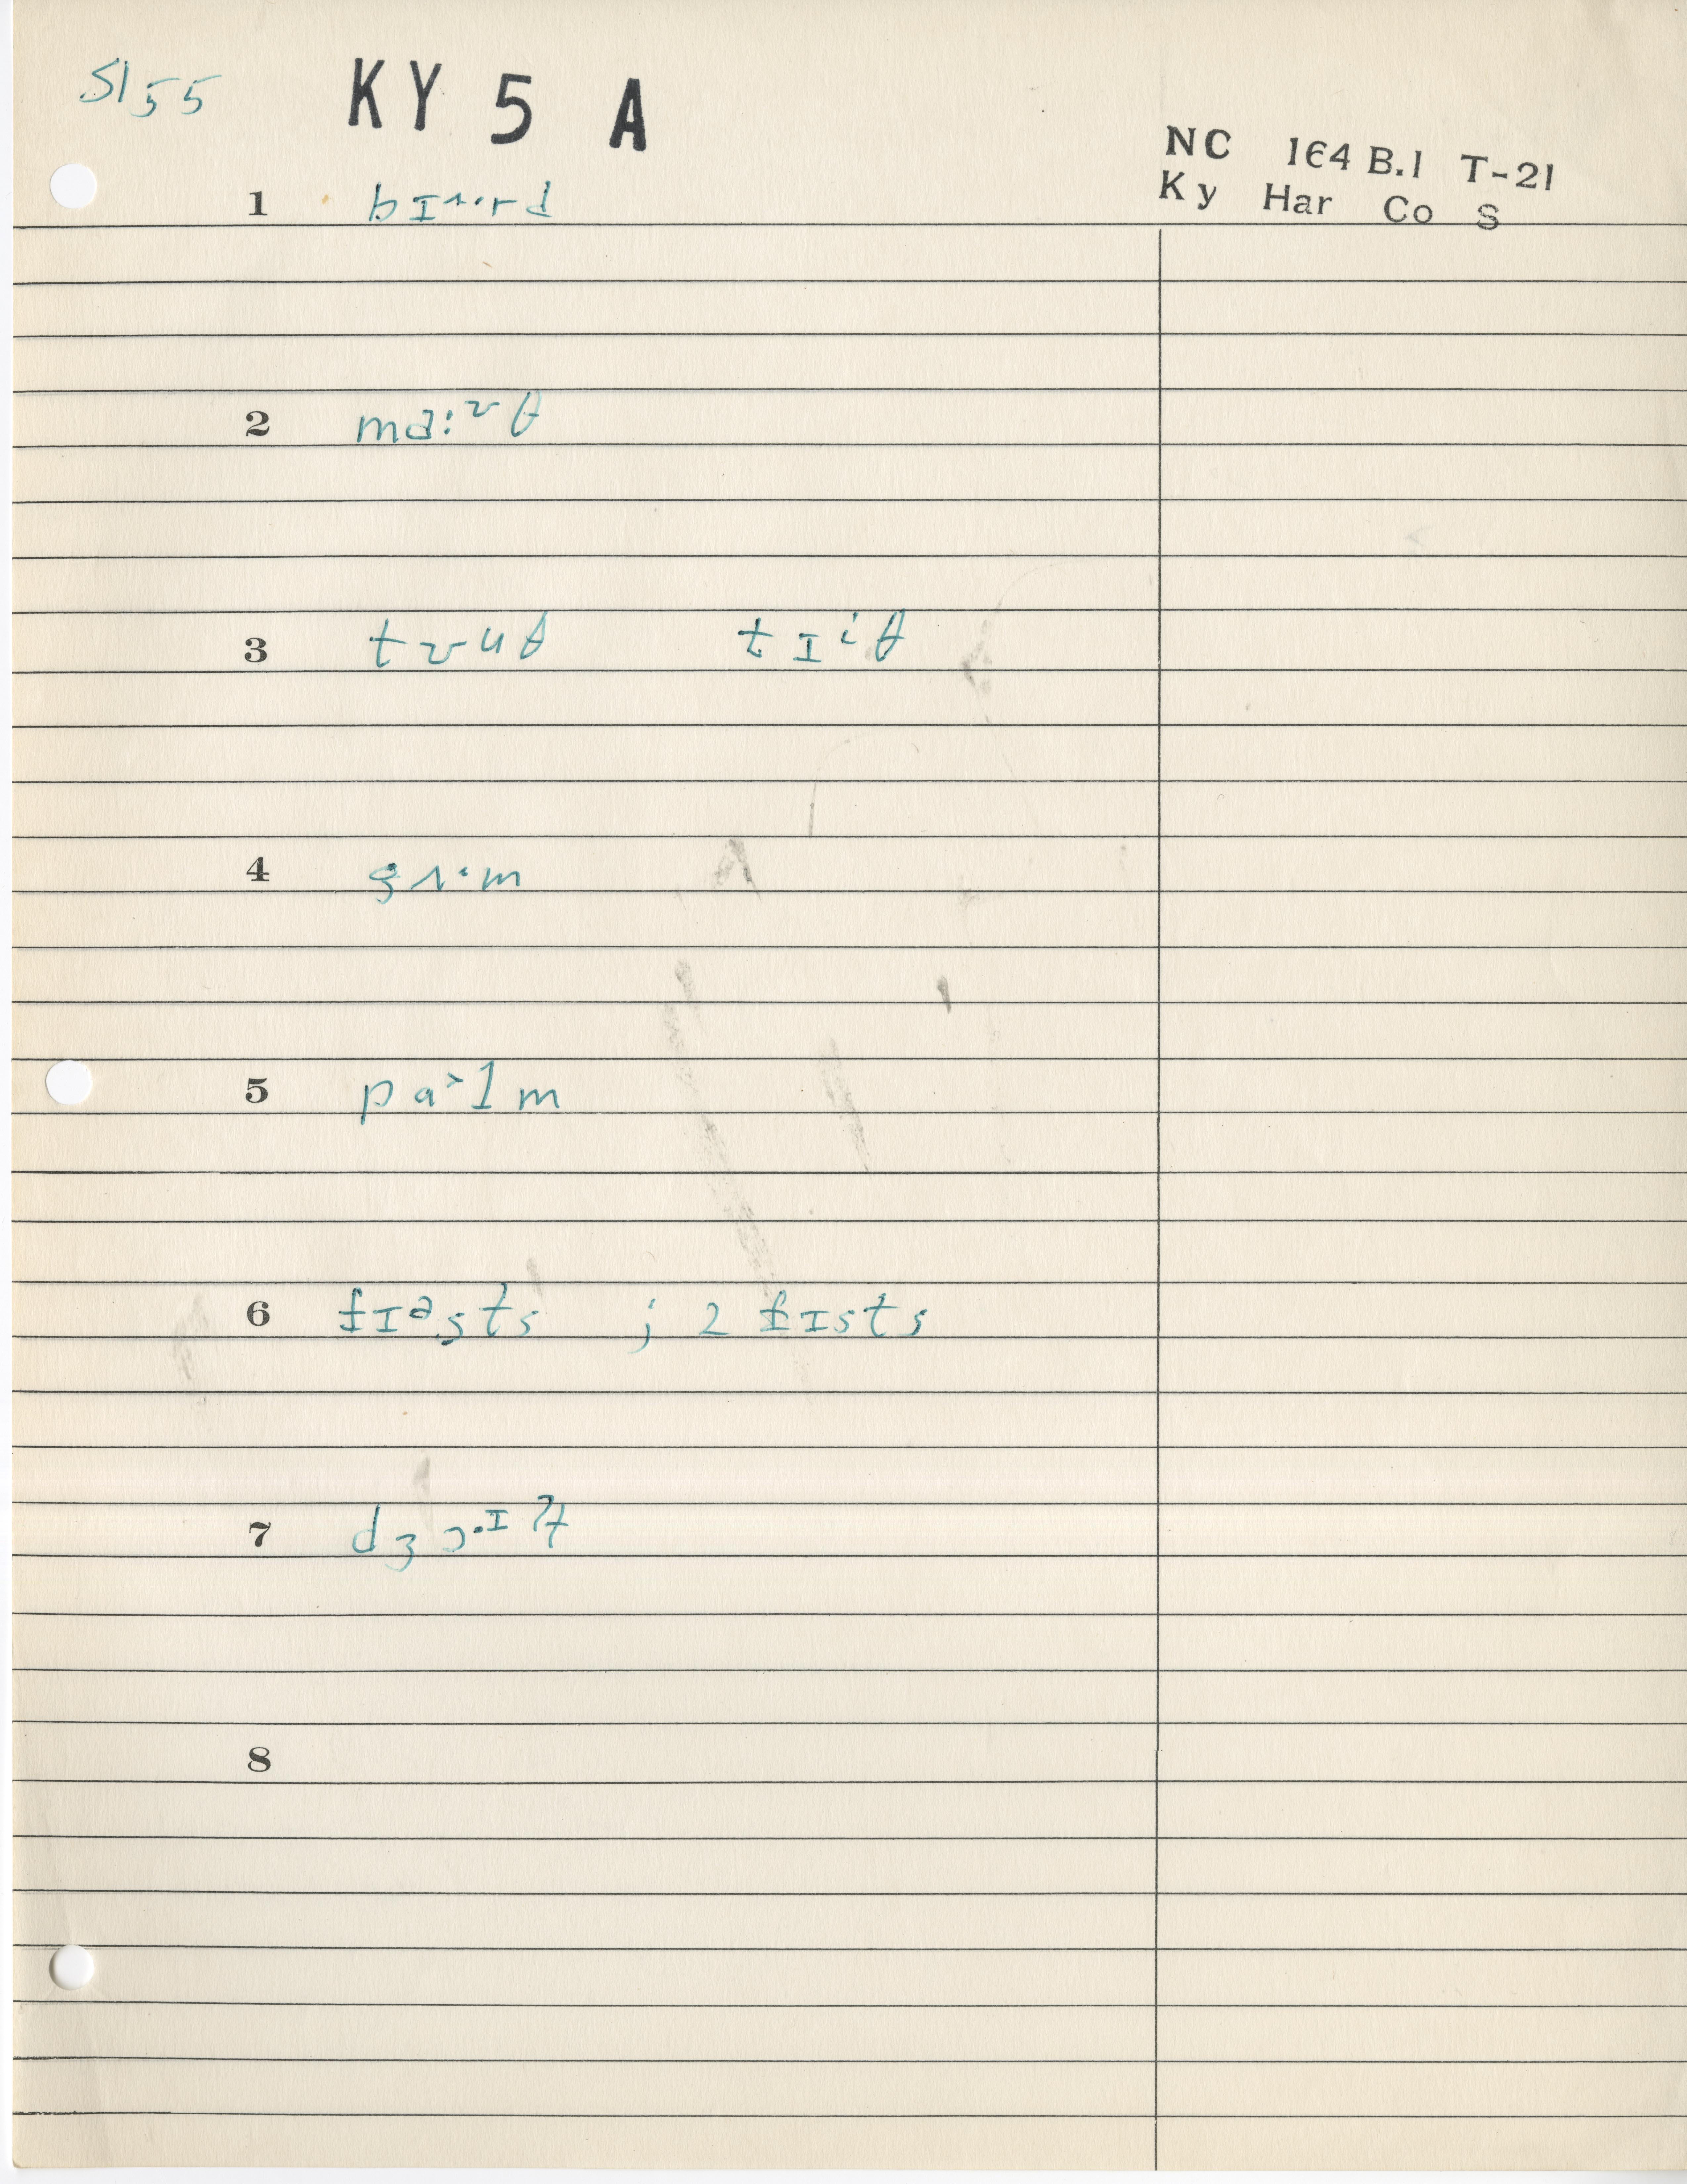 5155 KY 5 A
NC 164 B.1 T-21
Ky Har Co S
1 bɪ^·rd
2 ma:ᶷθ
3 tʊuθ tɪⁱθ
4 gʌ·m
5 pa˃lm
6 fɪᵊsts ; 2 fɪsts
7 dʒɔ·ᶦʔt
8